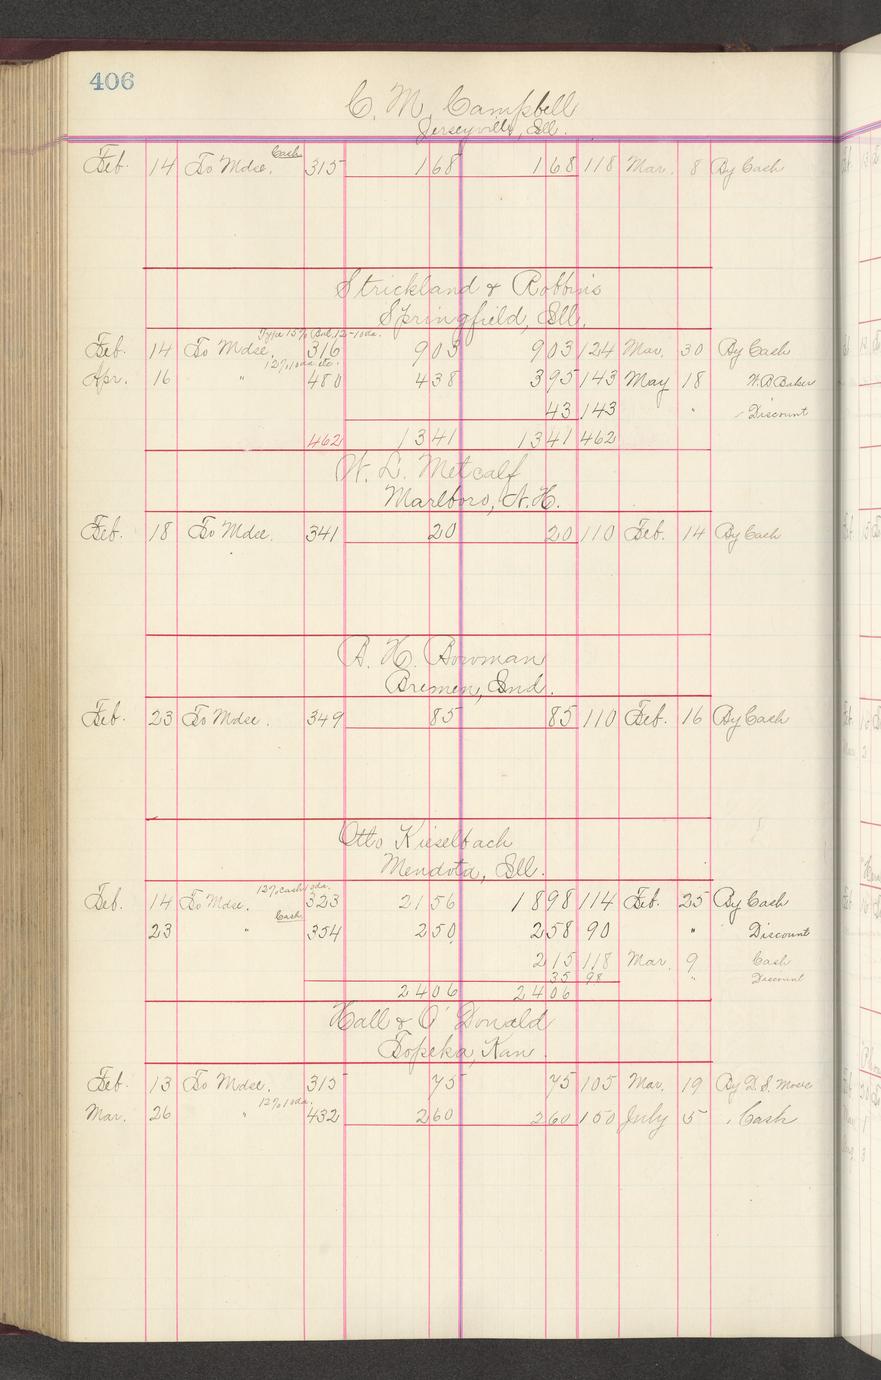 406
C. M. Campbell
Jerseyville, Ill.
Cash
Feb. 14 To Mdse. 315 168 168 118 Mar. 8 By Cash
Strickland & Robbins
Springfield, Ill.
Type 15% Bal. 12-10da.
Feb. 14 To Mdse. 316 903 903 124 Mar. 30 By Cash
12% 10da. etc.
Apr. 16 " 480 438 395 143 May 18 W. B Baker
43 143 " Discount
462 1341 1341 462
W. L. Metcalf
Marlboro, N. H.
Feb. 18 To Mdse. 341 20 20 110 Feb. 14 By Cash
B. H. Bowman
Bremen, Ind.
Feb. 23 To Mdse. 349 85 85 110 Feb. 16 By Cash
Otto Kieselbach
Mendota, Ill.
12% cash 10da.
Feb. 14 To Mdse. 323 2156 1898 114 Feb. 25 By Cash
Cash
23 " 354 250 258 90 " Discount
215 118 Mar. 9 Cash
35 98 " Discount
2406 2406
Hall & O'Donald
Topeka, Kan.
Feb. 13 To Mdse. 315 75 75 105 Mar. 19 By D. S.
12% 10da.
Mar. 26 " 432 260 260 150 July 5 Cash